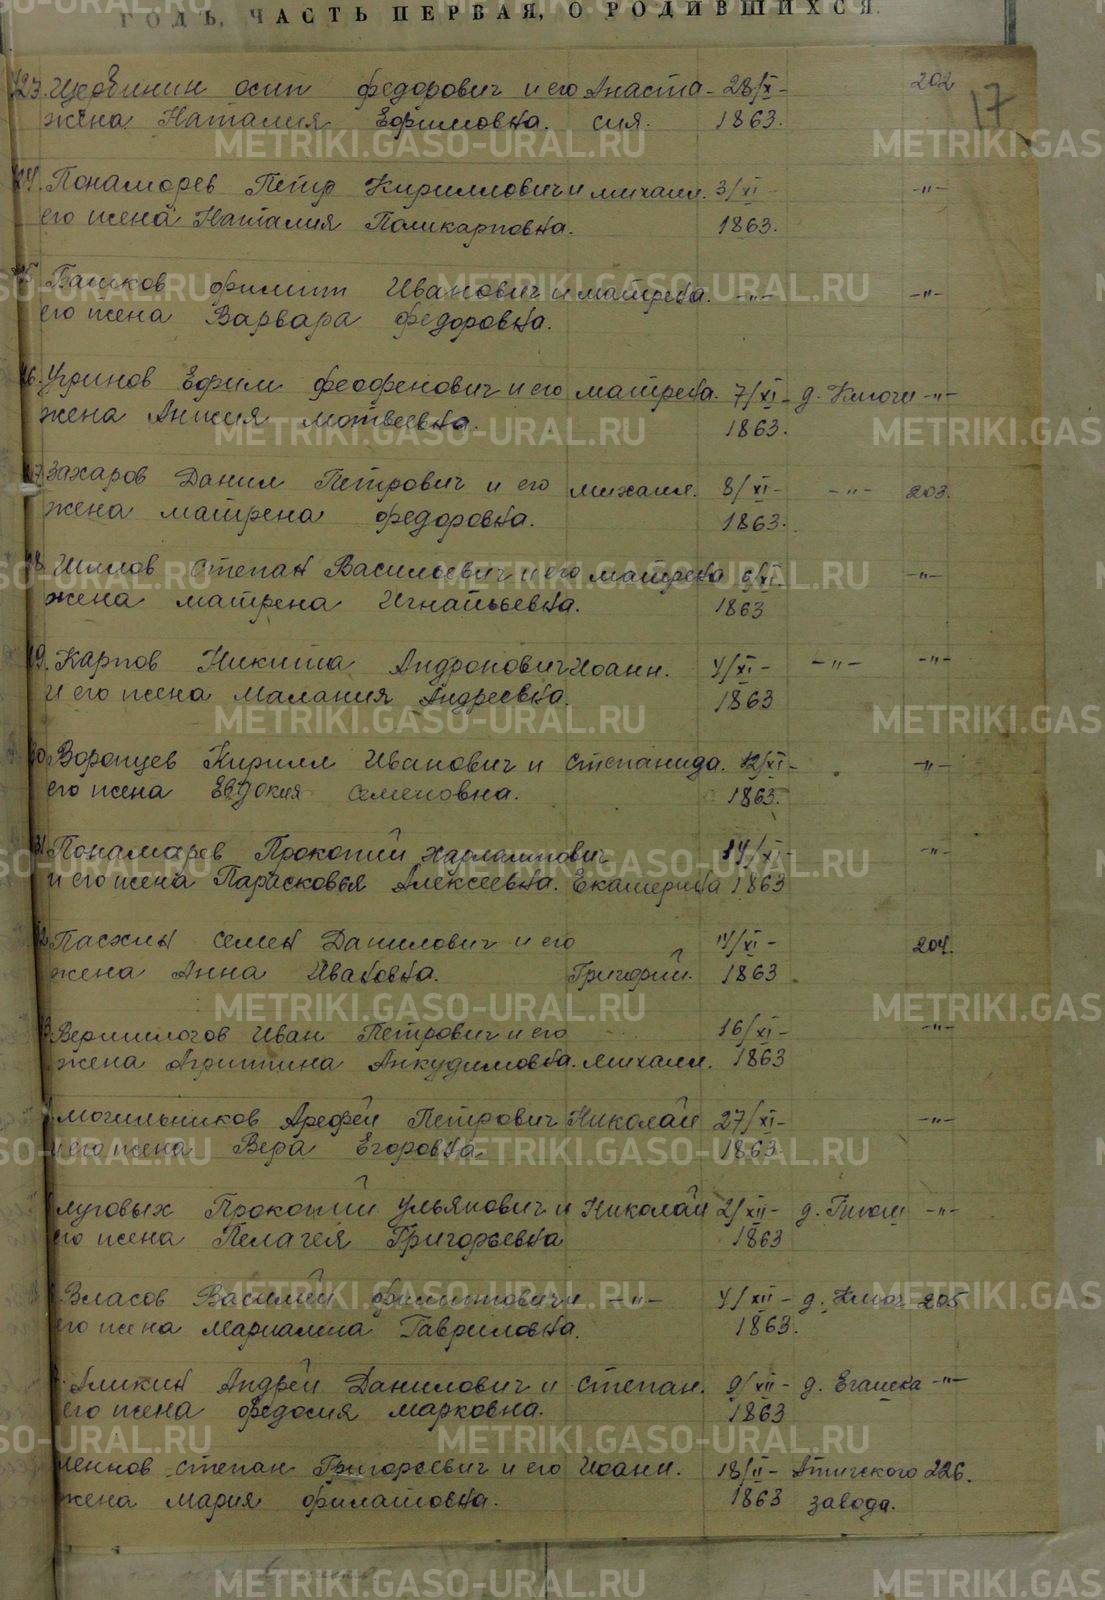 ГОДЪ, ЧАСТЬ ПЕРВАЯ, О РОДИВШИХСЯ.
17
23. Щербинин осип федорович и его Анаста- 28/XI- 202
жена Наталия Ефимовна. сия. 1863.
24. Понаморев Петр Кириллович и михаил. 3/XI- -"-
его жена Наталия Поликарповна. 1863.
Башков филипп Иванович и матрена. -"- -"-
его жена Варвара федоровна.
26. Угринов Ефим феофенович и его матрена. 7/XI- д. Ключи -"-
жена Анисия мотвеевна. 1863.
Захаров Данил Петрович и его михаил. 8/XI- -"- 203.
жена матрена федоровна. 1863.
Шилов степан Васильевич и его матрена 9/XI- -"-
жена матрена Игнатьевна. 1863
Карпов Никита Андронович Иоанн. 4/XI- -"- -"-
и его жена Малания Андреевна. 1863
Воронцев Кирилл Иванович и степанида. 12/XI- -"-
его жена Евдокия семеновна. 1863.
Понамарев Прокопий харлампович 14/XI- -"-
и его жена Парасковья Алексеевна. Екатерина 1863
Пасхин семен Данилович и его 14/XI- 204.
жена Анна Ивановна. Григорий. 1863
Вершилогов Иван Петрович и его 16/XI- -"-
жена Агриппина Анкудимовна. михаил. 1863
могильников Арефей Петрович Николай 27/XI- -"-
и его жена Вера Егоровна 1863.
луговых Прокопий Ульянович и Николай 2/XII- д. -"-
его жена Пелагея Григорьевна 1863
Власов Василий филиппович и -"- 4/XII- д. Ключ 205
его жена Мариамна Гавриловна. 1863.
Аликин Андрей Данилович и степан. 9/XII- д. -"-
его жена федосия марковна. 1863
степан Григорьевич и его Иоанн. 18/II- Атигского 226.
жена мария филатовна. 1863 завода.
METRIKI.GASO-URAL.RU